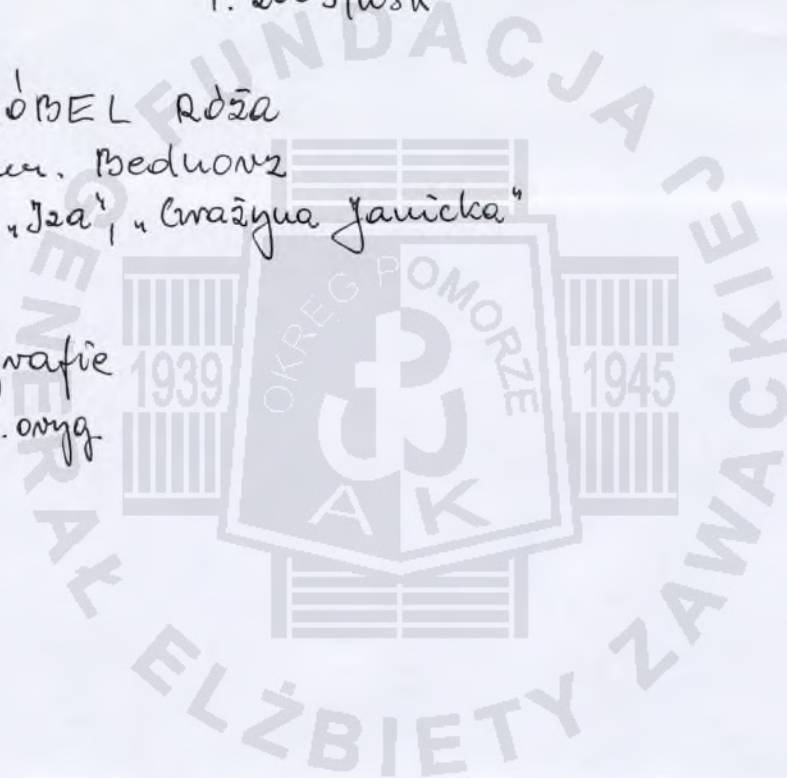 ÓBEL RÓŻA
Bednorz
"Iza", "Grażyna Janicka"
oryg
FUNDACJA GENERAŁ ELŻBIETY ZAWACKIEJ
OKRĘG POMORZE
1939 1945
A K